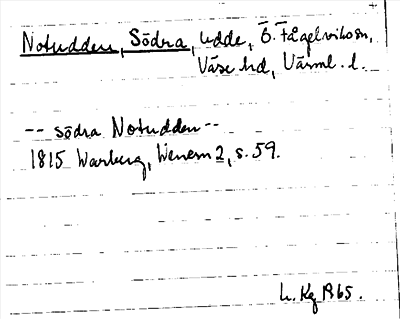 Notudden, Södra, udde, Ö. Fågelviks sn,
Väse hd, Värml. l.
-- södra Notudden --
1815 Warberg, Wenern 2, s. 59.
L. Kg 1965.